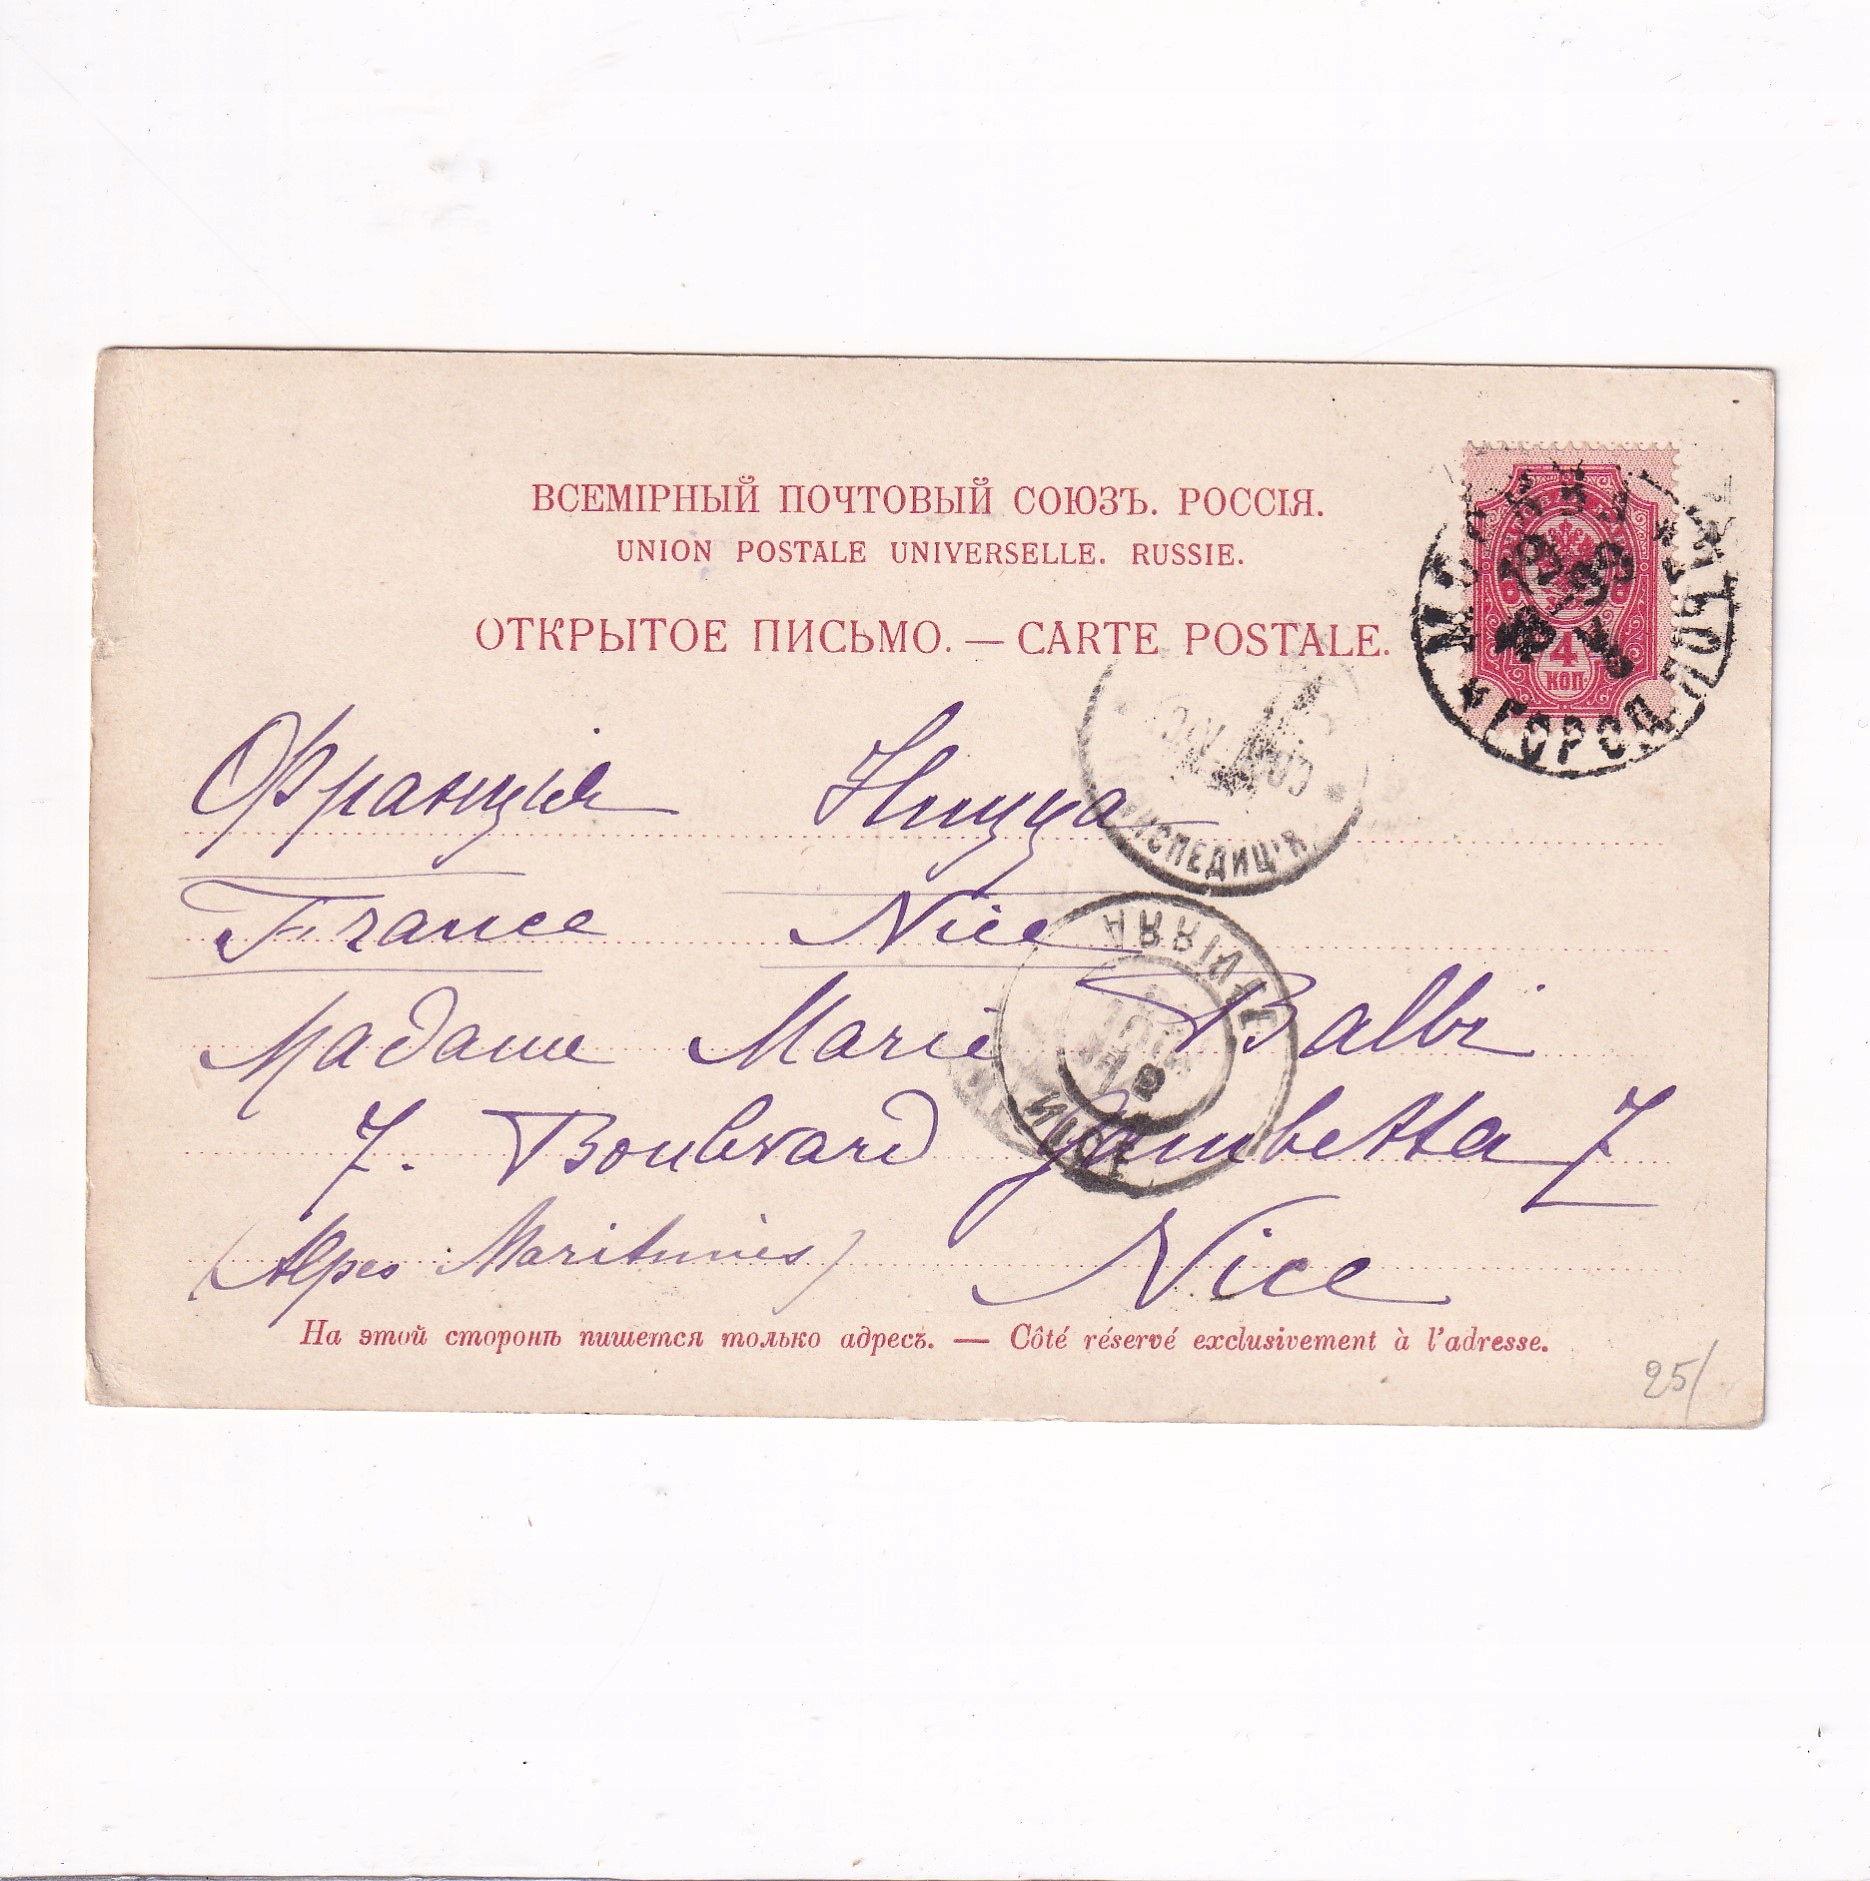 ВСЕМІРНЫЙ ПОЧТОВЫЙ СОЮЗЪ. РОССІЯ.
UNION POSTALE UNIVERSELLE. RUSSIE.
ОТКРЫТОЕ ПИСЬМО. — CARTE POSTALE.
4
КОП.
МОСКВА
ГОРОД. ПОЧТ
ЭКСПЕДИЦІЯ
Франція Ницца
France Nice
ARRIVÉE
NICE
Madame Marie Balbi
7. Boulevard Gambetta 7
(Alpes Maritimes) Nice
На этой сторонѣ пишется только адресъ. — Côté réservé exclusivement à l'adresse.
25/